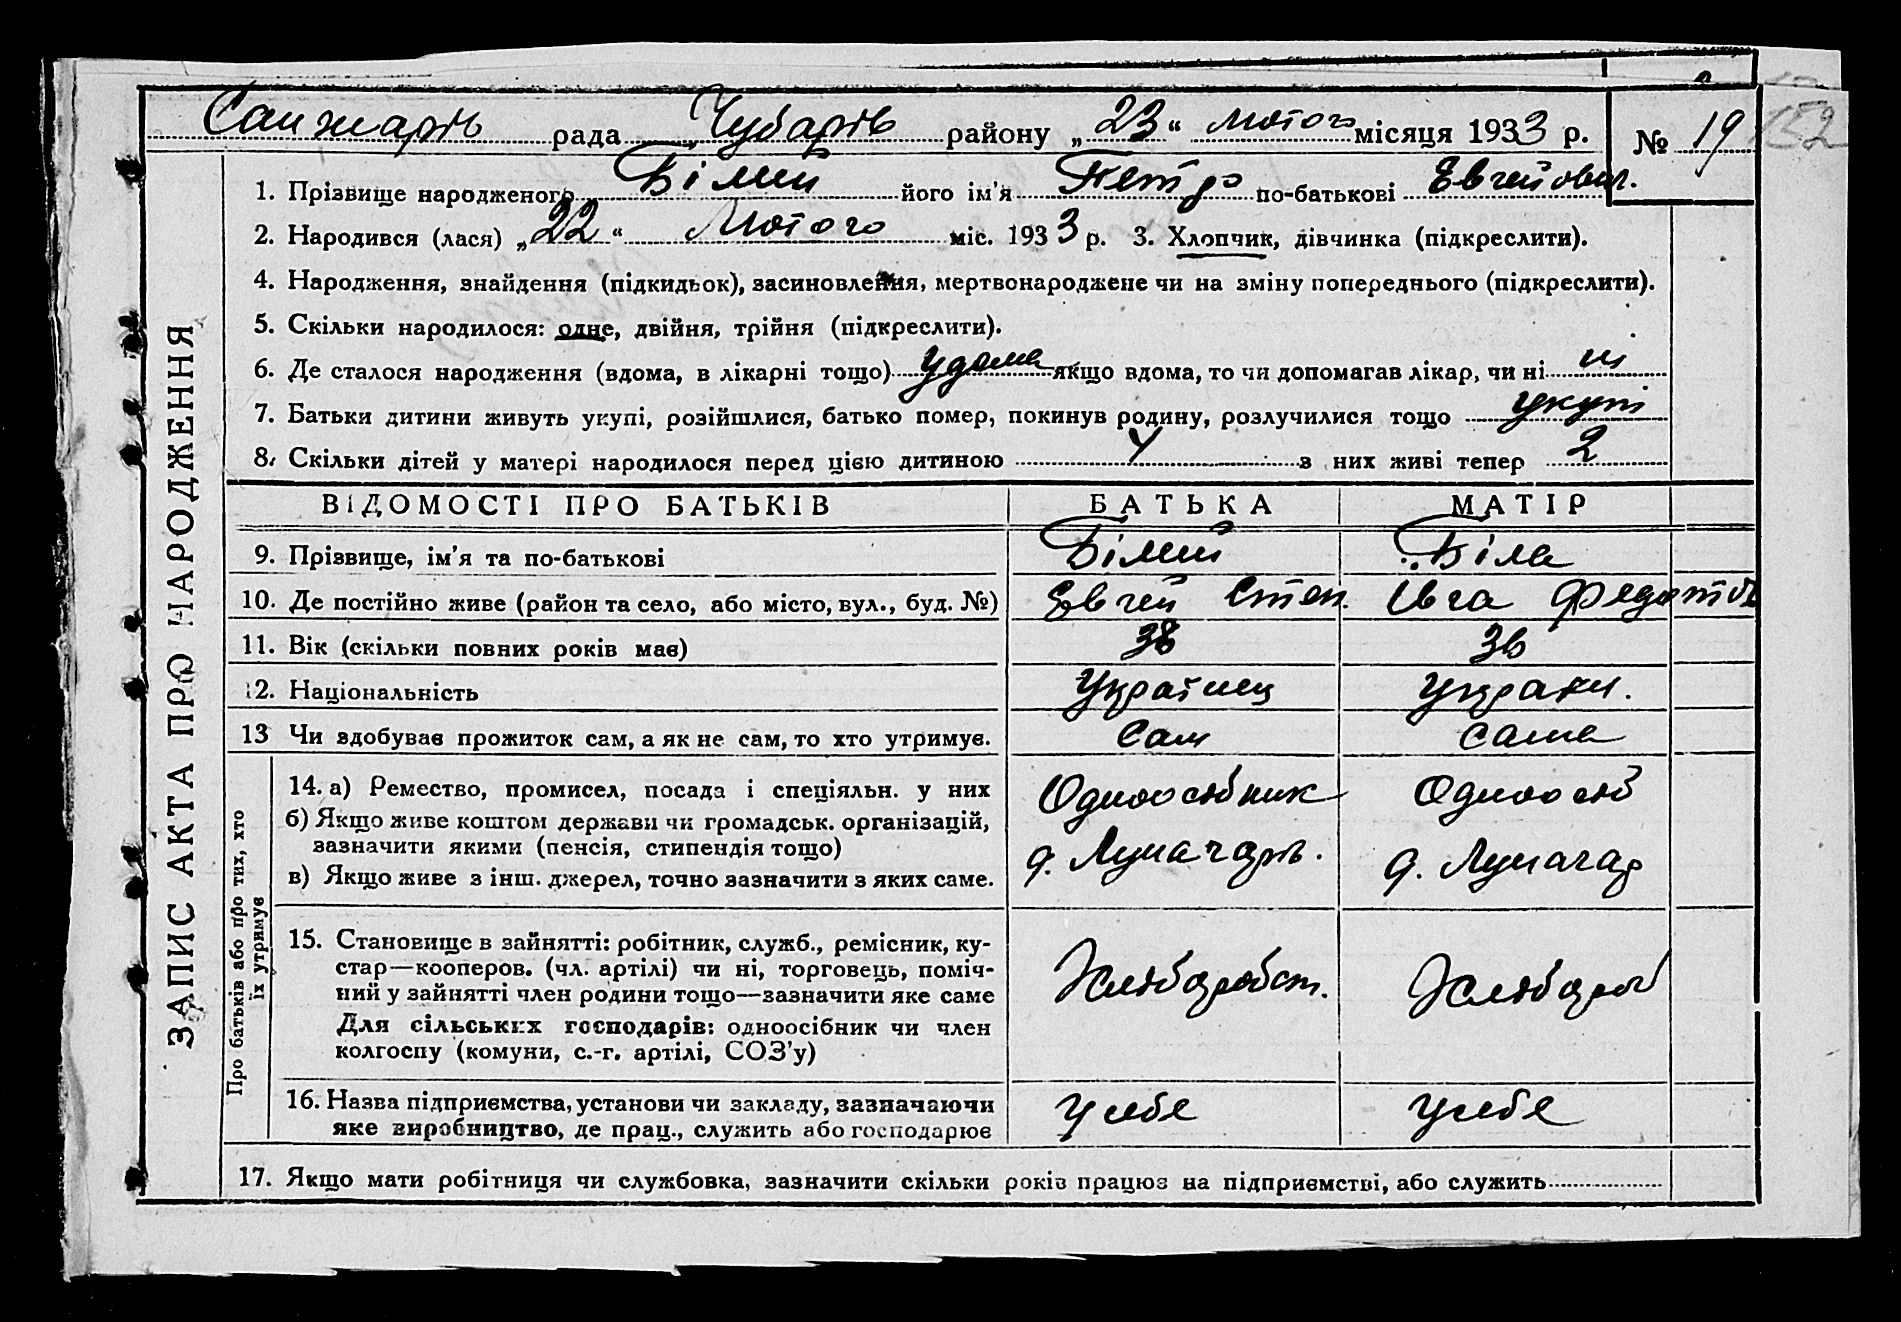 Санжарів рада Чубарів району „23“ лютого місяця 1933 р. № 19 152
1. Прізвище народженого Білий його ім'я Петро по-батькові Евгейович.
2. Народився (лася) „22“ Лютого міс. 1933 р. 3. Хлопчик, дівчинка (підкреслити).
4. Народження, знайдення (підкидьок), засиновлення, мертвонароджене чи на зміну попереднього (підкреслити).
5. Скільки народилося: одне, двійня, трійня (підкреслити).
6. Де сталося народження (вдома, в лікарні тощо) удома якщо вдома, то чи допомагав лікар, чи ні ні
7. Батьки дитини живуть укупі, розійшлися, батько помер, покинув родину, розлучилися тощо укупі
8. Скільки дітей у матері народилося перед цією дитиною 4 з них живі тепер 2
ЗАПИС АКТА ПРО НАРОДЖЕННЯ
ВІДОМОСТІ ПРО БАТЬКІВ БАТЬКА МАТІР
9. Прізвище, ім'я та по-батькові Білий Біла
10. Де постійно живе (район та село, або місто, вул., буд. №) Евгей Степ. Ивга Федотів
11. Вік (скільки повних років має) 38 36
12. Національність Українец Украки.
13 Чи здобуває прожиток сам, а як не сам, то хто утримує. Сам Сама
Про батьків або про тих, хто
їх утримує
14. а) Ремество, промисел, посада і спеціяльн. у них Одноосібник Одноосіб
б) Якщо живе коштом держави чи громадськ. організацій,
зазначити якими (пенсія, стипендія тощо) д. Луначарів. д. Луначар
в) Якщо живе з інш. джерел, точно зазначити з яких саме.
15. Становище в зайнятті: робітник, служб., ремісник, ку-
стар—кооперов. (чл. артілі) чи ні, торговець, поміч- Хліборобст. Хлібороб
ний у зайнятті член родини тощо—зазначити яке саме
Для сільських господарів: одноосібник чи член
колгоспу (комуни, с.-г. артілі, СОЗ'у)
16. Назва підприємства, установи чи закладу, зазначаючи У себе У себе
яке виробництво, де прац., служить або господарює
17. Якщо мати робітниця чи службовка, зазначити скільки років працює на підприємстві, або служить